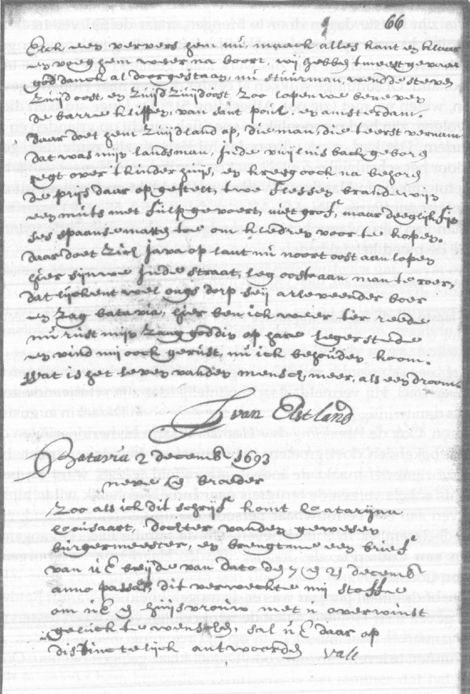 66
Elck een ververs hem nu, maack alles kant en klaar
en voeg hem weer na boort, wij hebben 't meeste gevaar
god danck al doorgestaan, nu stuurman, wend de steven
Zuijd oost, en Zuijd Zuijdoost Zoo lopen we beneven
de barre klippen, van sant poul, en amsterdam.
daar doet hem Zuijdland op, die man, die 't eerst vernam
dat was mijn landsman. Inde vuijlnis back geboren
regt over 't kinder huijs, en kreeg oock na behoren
de prijs daar op gestelt, twee flessen brandewijn
een muts met tulp gevoert, niet grof, maar deegelijk fijn
ses spaanse matten toe, om klederen voor te kopen.
daar doet Zich Java op laat nu noort oost aan lopen
hier sijn we Inde straat, leg oost aan man te roer,
dat lijckent wel ons dorp, seij arleveender boer
en Zag batavia, hier ben ick weer ter reede
nu rust mijn Zang goddin op hare legerstede
en vind mij oock gerust, nu ick behouden koom.
Wat is het leven vanden mensch meer, als een droom
J van Elstland
Batavia 2 decemb 1692
neve en broeder
Zoo als ick dit schrijf komt Catarijna
Couisaart, dochter vanden gewesen
burgermeester, en brengt me een brief
van u E beijde van dato den en 21 decemb
anno passato dit verweckte mij stoffe
om u E en huijsvrouw met u overwinst
geluck te wenschen, sal u E daar op
distinctelijck antwoorden vale